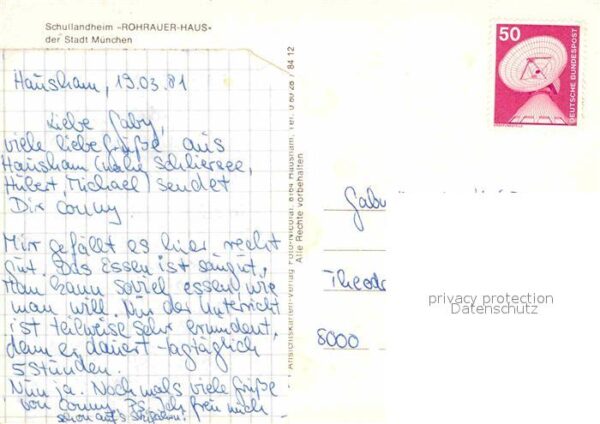 Schullandheim »ROHRAUER-HAUS«
der Stadt München
Hausham, 19.03.81
Liebe Gaby,
viele liebe Grüße aus
Hausham (nahe Schliersee,
Hubert, Michael) sendet
Dir Conny.
Mir gefällt es hier recht
gut. Das Essen ist saugut,
man kann soviel essen wie
man will. Nur der Unterricht
ist teilweise sehr ermüdent,
denn er dauert tagtäglich
5 Stunden.
Nun ja. Nochmals viele Grüße
von Conny. PS: Ich freu mich
schon auf's
Ansichtskarten-Verlag Foto-Nicolai, 8164 Hausham, Tel. 0 80 26 / 84 12
Alle Rechte vorbehalten
50
DEUTSCHE BUNDESPOST
Theodo
8000
privacy protection
Datenschutz